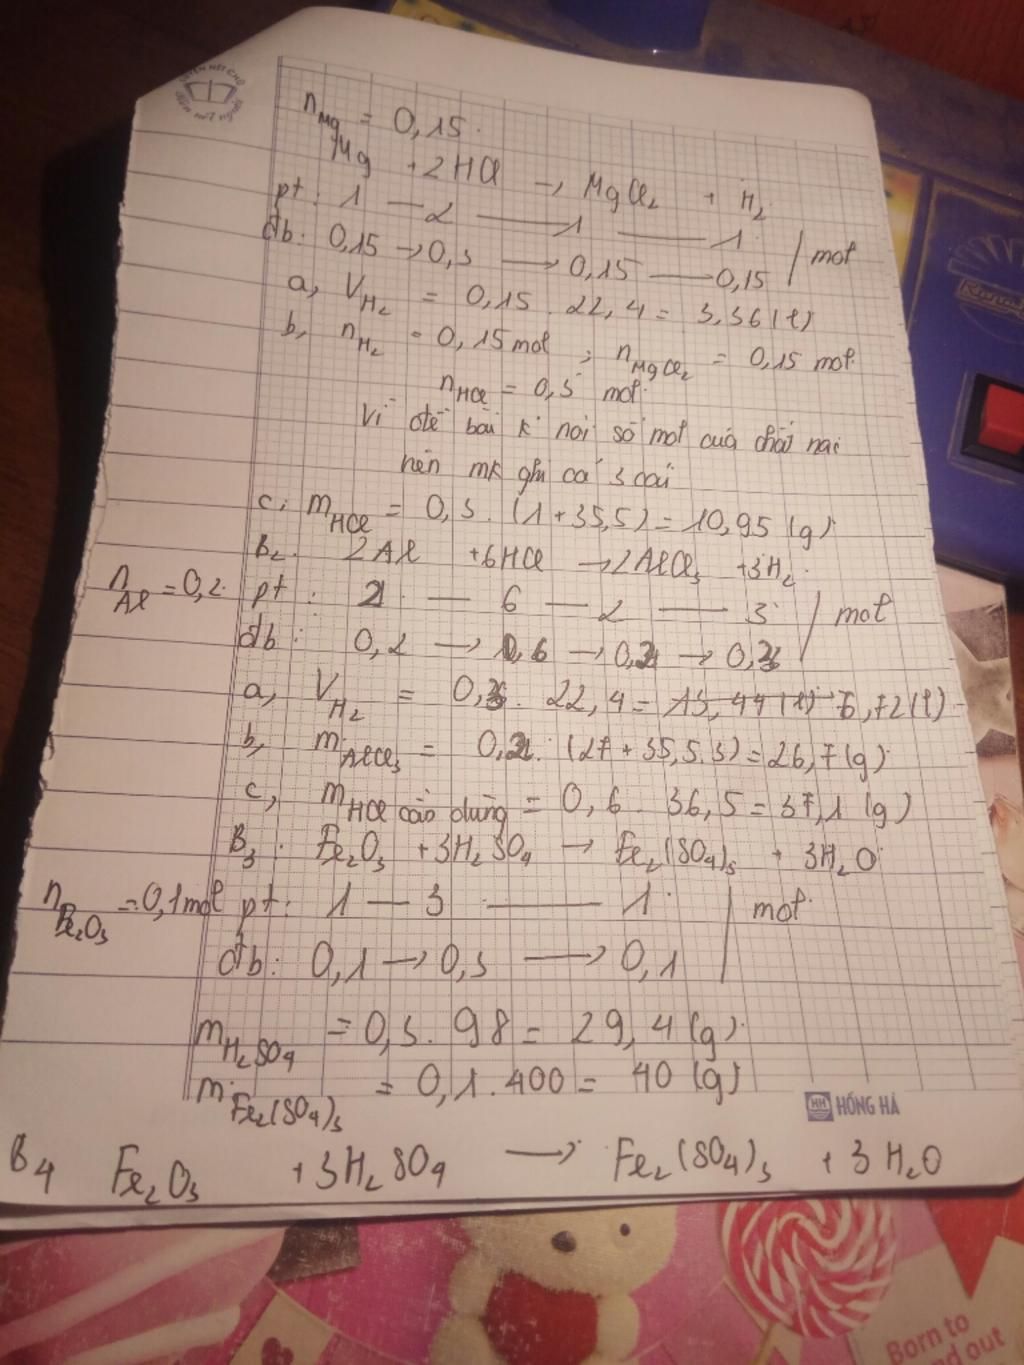 LUYỆN NÉT CHỮ
RÈN NẾT NGƯỜI
n Mg = 0,15.
Mg + 2HCl → MgCl₂ + H₂
pt: 1 — 2 — 1 — 1 / mol
đb: 0,15 → 0,3 → 0,15 — 0,15
a, V H₂ = 0,15 . 22,4 = 3,36 (l)
b, n H₂ = 0,15 mol ; n MgCl₂ = 0,15 mol.
n HCl = 0,3 mol.
Vì đề bài k nói số mol của chất nài
nên mk ghi cả 3 cái
c, m HCl = 0,3 . (1 + 35,5) = 10,95 (g)
B₂. 2Al + 6HCl → 2AlCl₃ + 3H₂.
n Al = 0,2. pt : 2 — 6 — 2 — 3 / mol
đb : 0,2 → 0,6 → 0,2 → 0,3
a, V H₂ = 0,3 . 22,4 = 13,44 (l) 6,72 (l)
b, m AlCl₃ = 0,2. (27 + 35,5.3) = 26,7 (g)
c, m HCl cần dùng = 0,6 . 36,5 = 37,1 (g)
B₃ : Fe₂O₃ + 3H₂SO₄ → Fe₂(SO₄)₃ + 3H₂O
n Fe₂O₃ = 0,1 mol pt: 1 — 3 — 1 / mol
đb: 0,1 → 0,3 → 0,1
m H₂SO₄ = 0,3 . 98 = 29,4 (g)
m Fe₂(SO₄)₃ = 0,1 . 400 = 40 (g)
HH HỒNG HÀ
B₄ Fe₂O₃ + 3H₂SO₄ → Fe₂(SO₄)₃ + 3H₂O
Born to
out